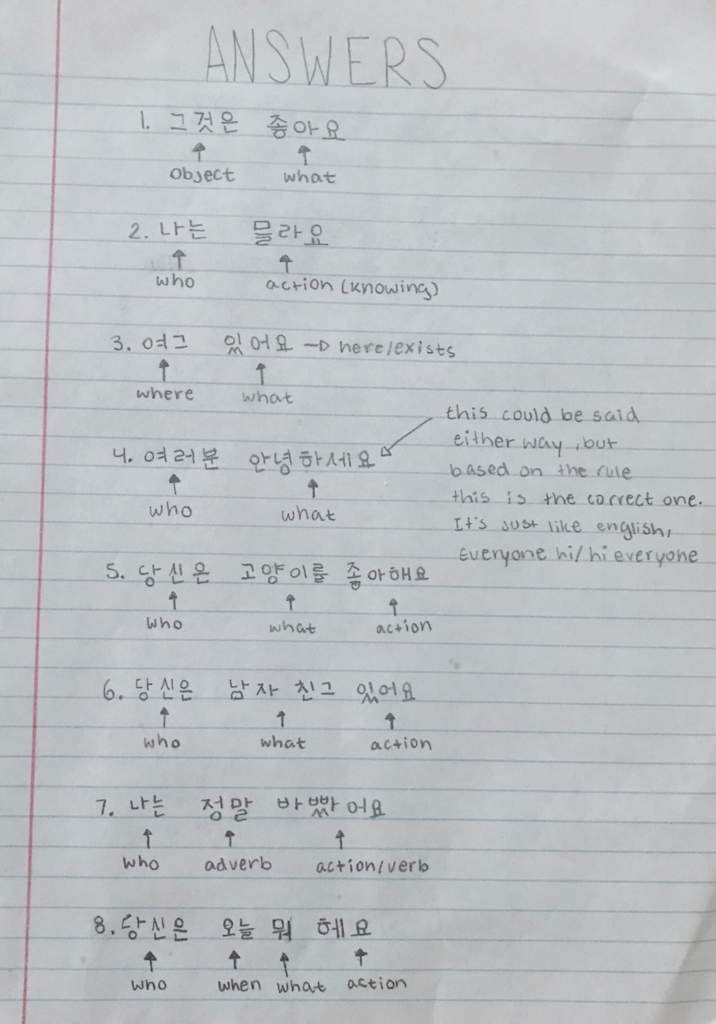 ANSWERS
1. 그것은 좋아요
↑ ↑
object what
2. 나는 믈라요
↑ ↑
who action (knowing)
3. 여그 있어요 → here/exists
↑ ↑
where what
4. 여러분 안녕하세요
↑ ↑
who what
this could be said
either way, but
based on the rule
this is the correct one.
It's just like english,
Everyone hi/hi everyone
5. 당신은 고양이를 좋아해요
↑ ↑ ↑
who what action
6. 당신은 남자 친그 있어요
↑ ↑ ↑
who what action
7. 나는 정말 바빴어요
↑ ↑ ↑
who adverb action/verb
8. 당신은 오늘 뭐 헤요
↑ ↑ ↑ ↑
who when what action